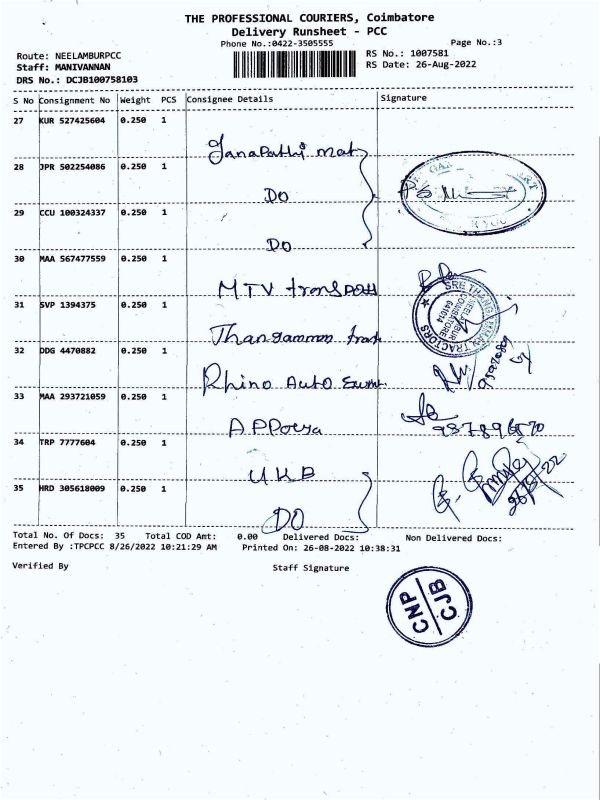 THE PROFESSIONAL COURIERS, Coimbatore
Delivery Runsheet - PCC
Phone No.:0422-3505555
Page No.:3
Route: NEELAMBURPCC
RS No.: 1007581
Staff: MANIVANNAN
RS Date: 26-Aug-2022
DRS No.: DCJB100758103
S No Consignment No Weight PCS Consignee Details Signature
27 KUR 527425604 0.250 1
Ganapathi mat
28 JPR 502254086 0.250 1
DO
29 CCU 100324337 0.250 1
DO
30 MAA 567477559 0.250 1
MTV transport
31 SVP 1394375 0.250 1
SRE THANGAMMAN TRACTORS
NEELAMBUR
COIMBATORE
641014
Thangamman
32 DDG 4470882 0.250 1
Rhino Auto
33 MAA 293721059 0.250 1
34 TRP 7777604 0.250 1
35 HRD 305618009 0.250 1
DO
Total No. Of Docs: 35 Total COD Amt: 0.00 Delivered Docs: Non Delivered Docs:
Entered By :TPCPCC 8/26/2022 10:21:29 AM Printed On: 26-08-2022 10:38:31
Verified By Staff Signature
CNP
CJB